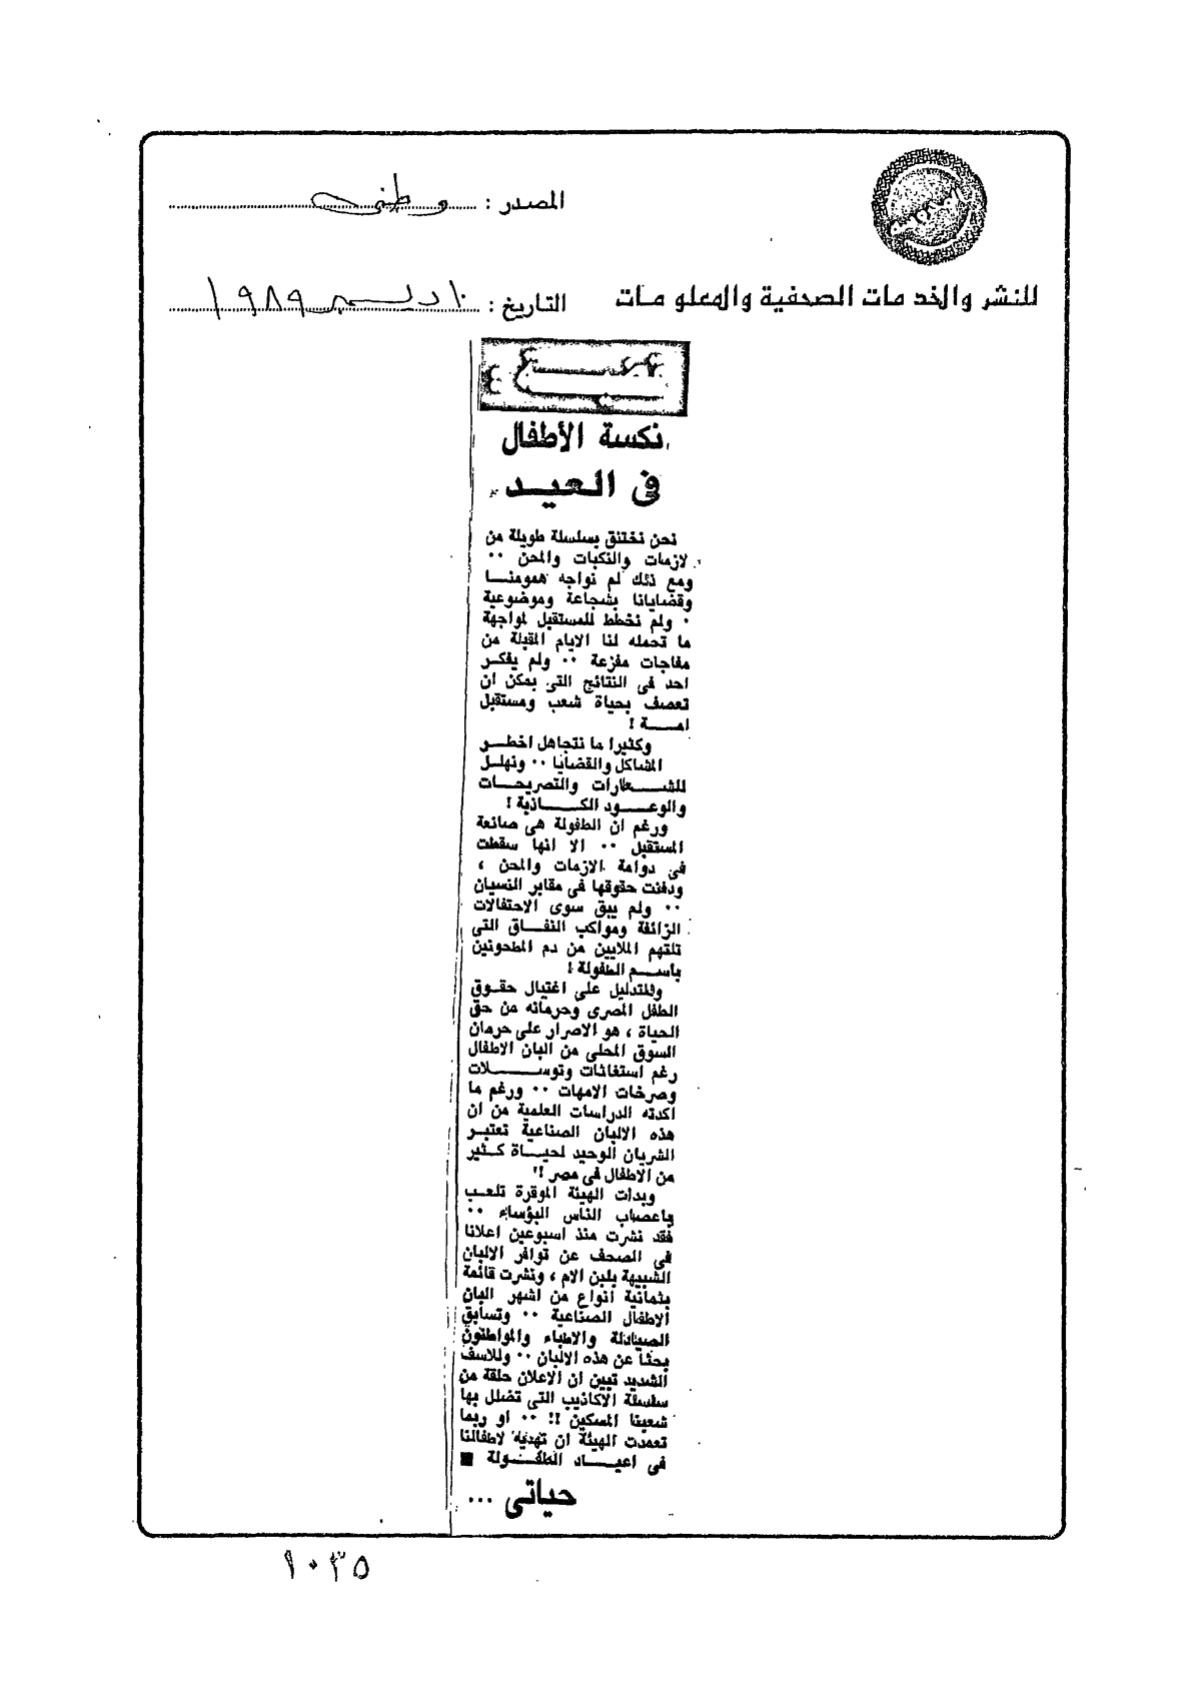 المصدر : وطنى
للنشر والخدمات الصحفية والمعلومات
التاريخ : ١٠ ديسمبر ١٩٨٩
نكسة الأطفال
فى العيد
نحن نختنق بسلسلة طويلة من
لازمات والنكبات والمحن ٠٠
ومع ذلك لم نواجه همومنا
وقضايانا بشجاعة وموضوعية
٠ ولم نخطط للمستقبل لمواجهة
ما تحمله لنا الايام المقبلة من
مفاجات مفزعة ٠٠ ولم يفكر
احد فى النتائج التى يمكن ان
تعصف بحياة شعب ومستقبل
امة !
وكثيرا ما نتجاهل اخطر
المشاكل والقضايا ٠٠ ونهلل
للشعارات والتصريحات
والوعود الكاذبة !
ورغم ان الطفولة هى صانعة
المستقبل ٠٠ الا انها سقطت
فى دوامة الازمات والمحن ،
ودفنت حقوقها فى مقابر النسيان
٠٠ ولم يبق سوى الاحتفالات
الزائفة ومواكب النفاق التى
تلتهم الملايين من دم المطحونين
باسم الطفولة !
وللتدليل على اغتيال حقوق
الطفل المصرى وحرمانه من حق
الحياة ، هو الاصرار على حرمان
السوق المحلى من البان الاطفال
رغم استغاثات وتوسلات
وصرخات الامهات ٠٠ ورغم ما
اكدته الدراسات العلمية من ان
هذه الالبان الصناعية تعتبر
الشريان الوحيد لحياة كثير
من الاطفال فى مصر !
وبدات الهيئة الموقرة تلعب
باعصاب الناس البؤساء ٠٠
فقد نشرت منذ اسبوعين اعلانا
فى الصحف عن توافر الالبان
الشبيهة بلبن الام ، ونشرت قائمة
بثمانية أنواع من اشهر البان
الاطفال الصناعية ٠٠ وتسابق
الصيادلة والاطباء والمواطنون
بحثا عن هذه الالبان ٠٠ وللاسف
الشديد تبين ان الاعلان حلقة من
سلسلة الاكاذيب التى تضلل بها
شعبنا المسكين !! ٠٠ او ربما
تعمدت الهيئة ان تهديه لاطفالنا
فى اعياد الطفولة ■
حياتى ...
١٠٣٥